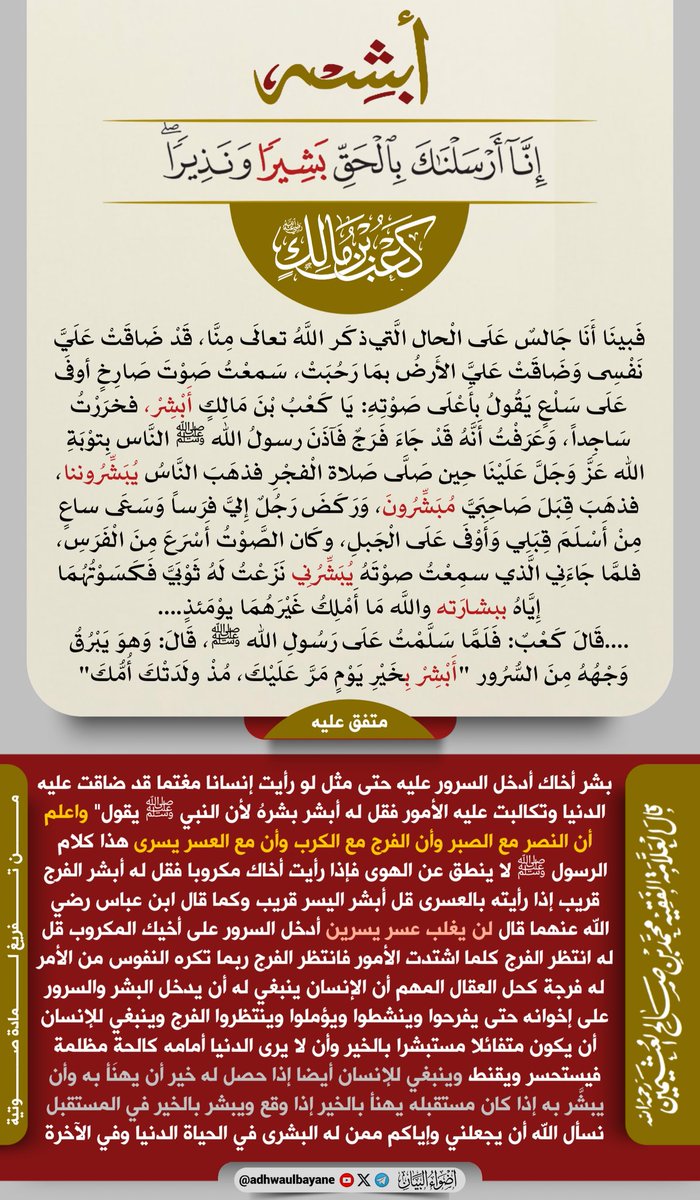 أبشر
إِنَّآ أَرْسَلْنَٰكَ بِٱلْحَقِّ بَشِيرًا وَنَذِيرًا ۖ
كَعْبُ بْنُ مَالِكٍ
فَبينَا أَنَا جَالسٌ عَلَى الْحال الَّتي ذكَر اللَّهُ تعالَى مِنَّا، قَدْ ضَاقَتْ عَلَيَّ
نَفْسِى وَضَاقَتْ عَليَّ الأَرضُ بمَا رَحُبَتْ، سَمعْتُ صَوْتَ صَارِخٍ أوفَى
عَلَى سَلْعٍ يَقُولُ بأَعْلَى صَوْتِهِ: يَا كَعْبُ بْنَ مَالِكٍ أَبْشِرْ، فخرَرْتُ
سَاجِداً، وَعَرَفْتُ أَنَّهُ قَدْ جَاءَ فَرَجٌ فَآذَنَ رسولُ الله ﷺ النَّاس بِتوْبَةِ
الله عَزَّ وَجَلَّ عَلَيْنَا حِين صَلَّى صَلاة الْفجْرِ فذهَبَ النَّاسُ يُبَشِّرُوننا،
فذهَبَ قِبَلَ صَاحِبَيَّ مُبَشِّرُونَ، وَرَكَضَ رَجُلٌ إِليَّ فرَساً وَسَعَى ساعٍ
مِنْ أَسْلَمَ قِبَلِي وَأَوْفَى عَلَى الْجَبلِ، وكَان الصَّوْتُ أَسْرَعَ مِنَ الْفَرَسِ،
فلمَّا جَاءَنِي الَّذي سمِعْتُ صوْتَهُ يُبَشِّرُنِي نَزَعْتُ لَهُ ثَوْبَيَّ فَكَسَوْتُهُمَا
إِيَّاهُ ببشارَته واللَّه مَا أَمْلِكُ غَيْرَهُمَا يوْمَئذٍ....
....قَالَ كَعْبٌ: فَلَمَّا سَلَّمْتُ عَلَى رَسُولِ الله ﷺ، قَالَ: وَهوَ يَبْرُقُ
وَجْهُهُ مِنَ السُّرُور "أَبْشِرْ بِخَيْرِ يَوْمٍ مَرَّ عَلَيْكَ، مُذْ ولَدَتْكَ أُمُّكَ"
متفق عليه
قال العلامة الفقيه محمد بن صالح العثيمين رحمه الله
بشر أخاك أدخل السرور عليه حتى مثل لو رأيت إنسانا مغتما قد ضاقت عليه
الدنيا وتكالبت عليه الأمور فقل له أبشر بشرهُ لأن النبي ﷺ يقول" واعلم
أن النصر مع الصبر وأن الفرج مع الكرب وأن مع العسر يسرى هذا كلام
الرسول ﷺ لا ينطق عن الهوى فإذا رأيت أخاك مكروبا فقل له أبشر الفرج
قريب إذا رأيته بالعسرى قل أبشر اليسر قريب وكما قال ابن عباس رضي
الله عنهما قال لن يغلب عسر يسرين أدخل السرور على أخيك المكروب قل
له انتظر الفرج كلما اشتدت الأمور فانتظر الفرج ربما تكره النفوس من الأمر
له فرجة كحل العقال المهم أن الإنسان ينبغي له أن يدخل البشر والسرور
على إخوانه حتى يفرحوا وينشطوا ويؤملوا وينتظروا الفرج وينبغي للإنسان
أن يكون متفائلا مستبشرا بالخير وأن لا يرى الدنيا أمامه كالحة مظلمة
فيستحسر ويقنط وينبغي للإنسان أيضا إذا حصل له خير أن يهنَأ به وأن
يبشَّر به إذا كان مستقبله يهنأ بالخير إذا وقع ويبشر بالخير في المستقبل
نسأل الله أن يجعلني وإياكم ممن له البشرى في الحياة الدنيا وفي الآخرة
من تفريغ لمادة صوتية
أضواء البيان @adhwaulbayane